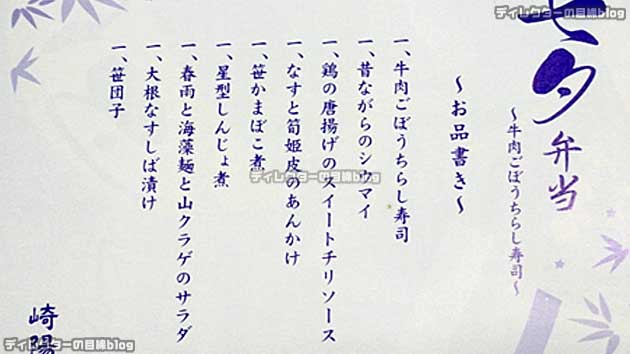 七夕弁当
～牛肉ごぼうちらし寿司～
～お品書き～
一、牛肉ごぼうちらし寿司
一、昔ながらのシウマイ
一、鶏の唐揚げのスイートチリソース
一、なすと筍姫皮のあんかけ
一、笹かまぼこ煮
一、星型しんじょ煮
一、春雨と海藻麺と山クラゲのサラダ
一、大根なすしば漬け
一、笹団子
崎陽
ディレクターの目線blog
ディレクターの目線blog
ディレクターの目線blog
ディレクターの目線blog
ディレクターの目線blog